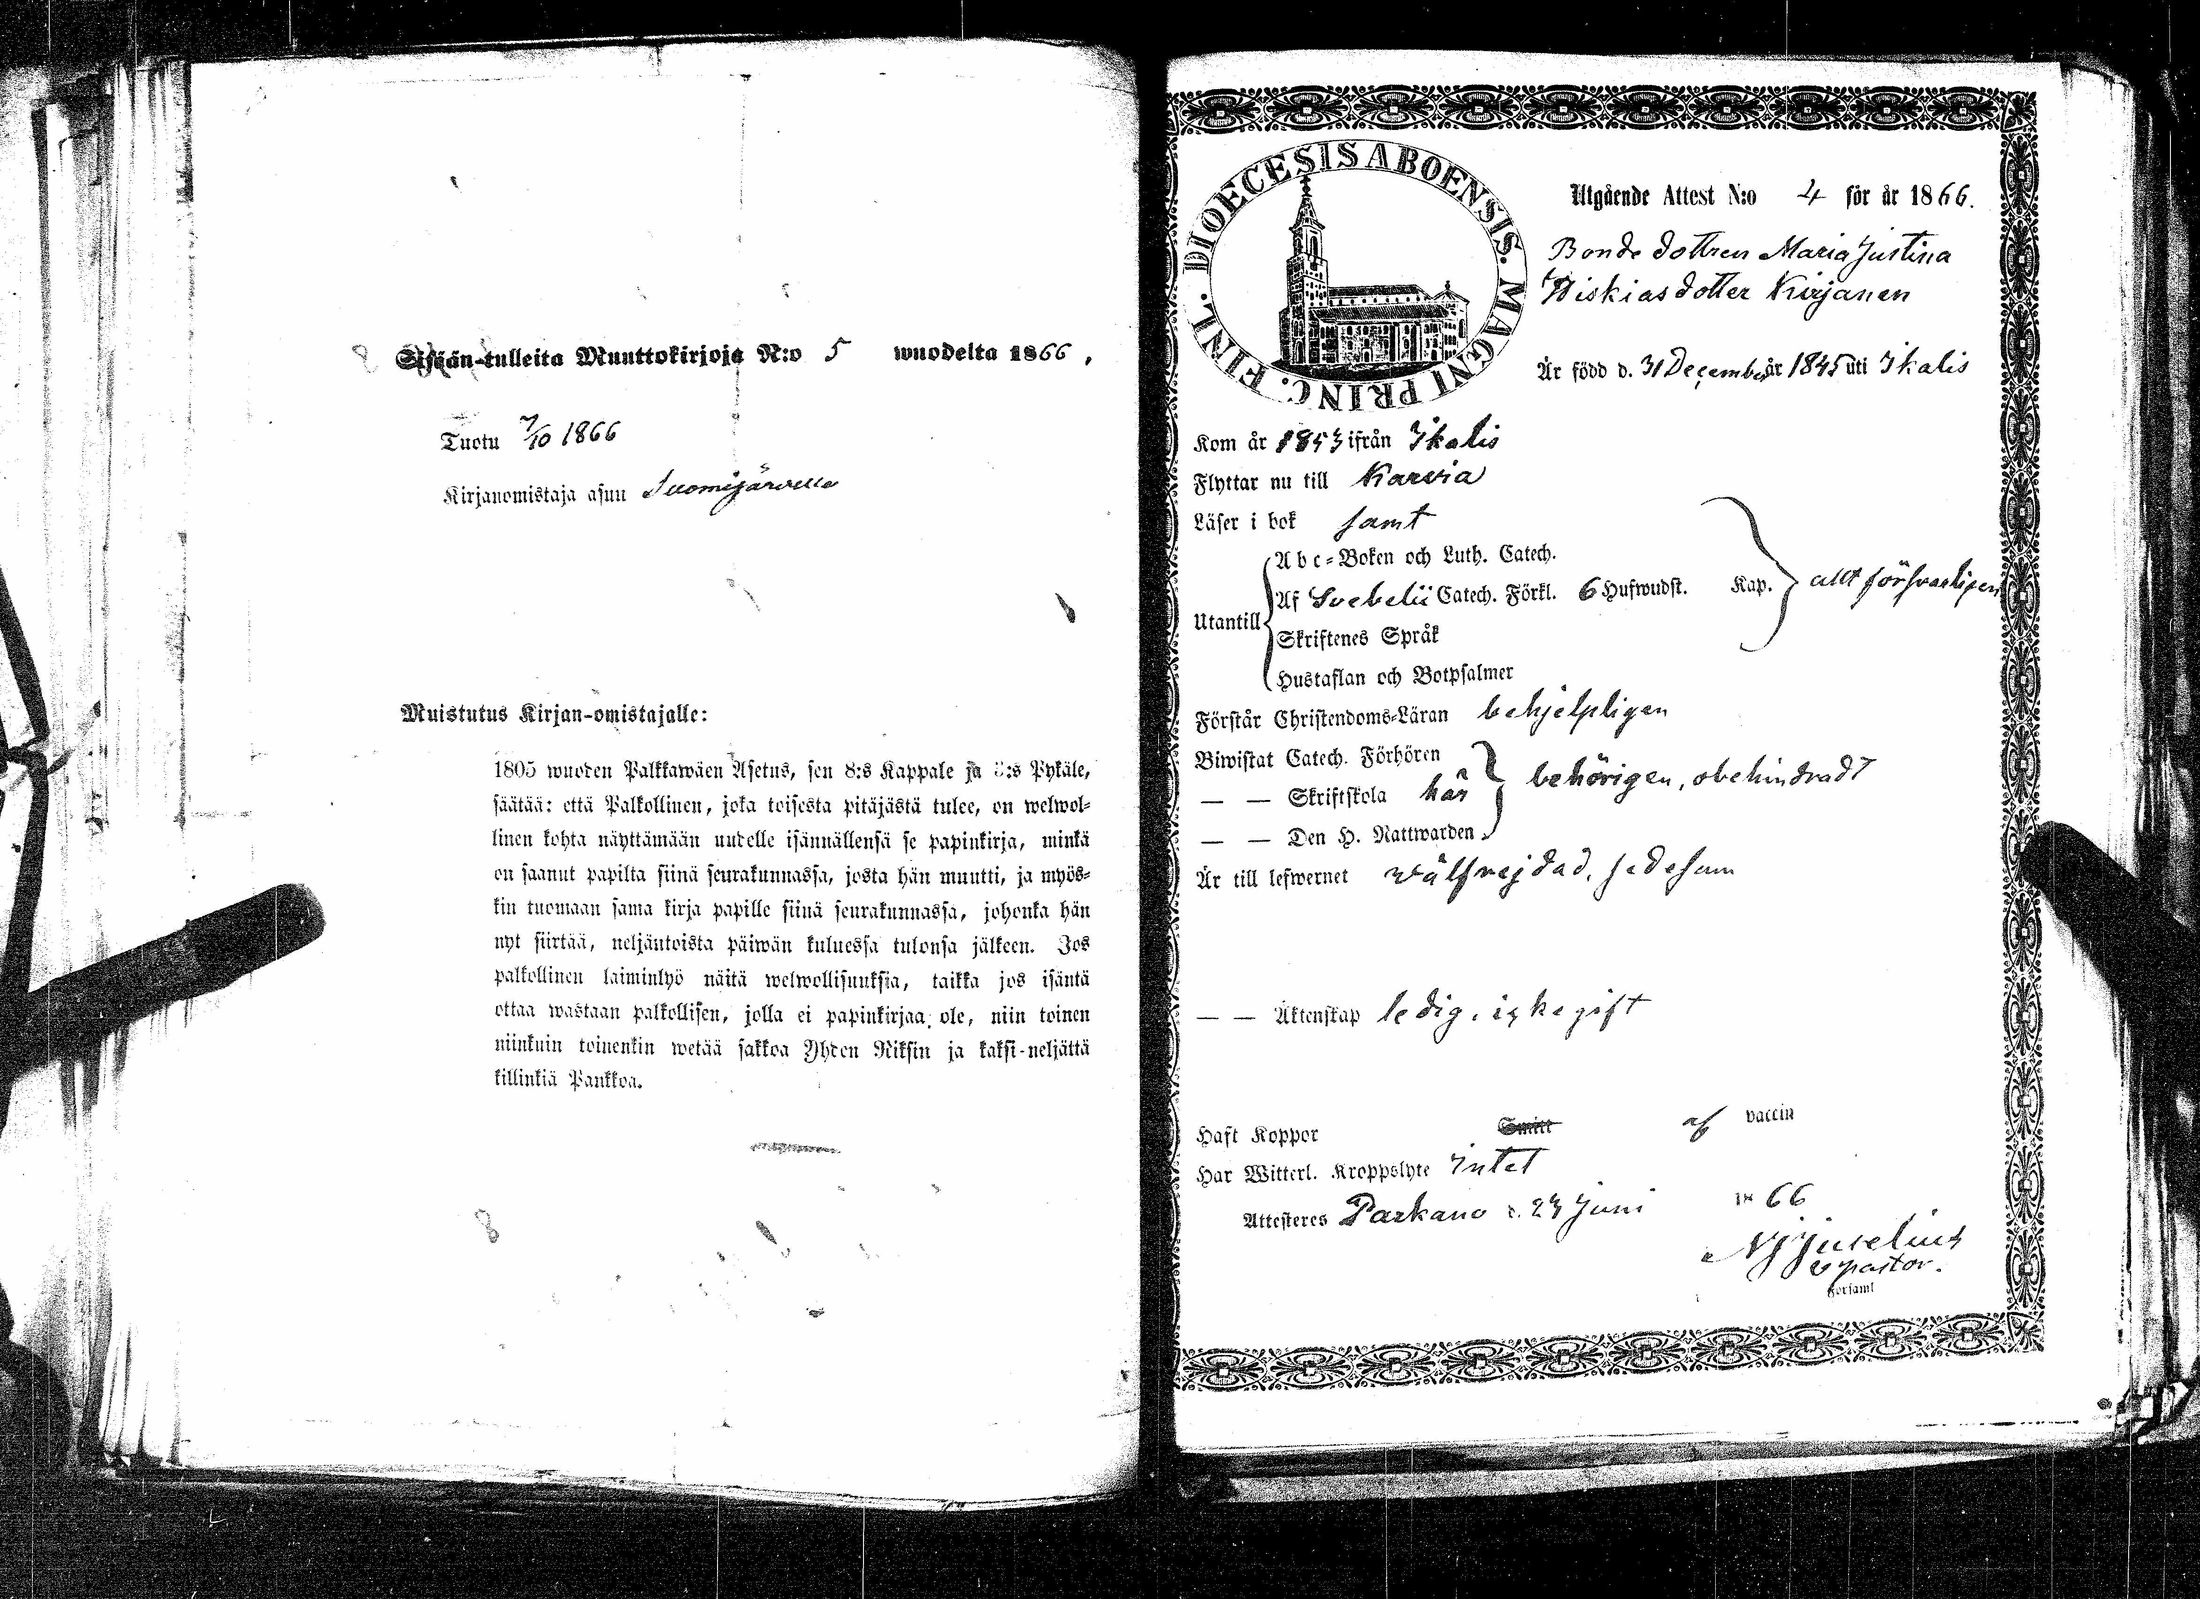 Sisään-tulleita Muuttokirjoja N:o 5 wuodelta 1866,
Tuotu 7/10 1866
Kirjanomistaja asuu Suomijärvellä
Muistutus Kirjan-omistajalle:
1805 wuoden Palkkawäen Asetus, sen 8:s Kappale ja 3:s Pykäle,
säätää: että Palkollinen, joka toisesta pitäjästä tulee, on welwol-
linen kohta näyttämään uudelle isännällensä se papinkirja, minkä
on saanut papilta siinä seurakunnassa, josta hän muutti, ja myös-
kin tuomaan sama kirja papille siinä seurakunnassa, johonka hän
nyt siirtää, neljäntoista päiwän kuluessa tulonsa jälkeen. Jos
palkollinen laiminlyö näitä welwollisuuksia, taikka jos isäntä
ottaa wastaan palkollisen, jolla ei papinkirjaa ole, niin toinen
niinkuin toinenkin wetää sakkoa Yhden Riksin ja kaksi-neljättä
killinkiä Pankkoa.
DIOECESIS ABOENSIS. MAGNI PRINC. FINL.
Utgående Attest N:o 4 för år 1866.
Bonde dottren Maria Justina
Hiskias dotter Kirjanen
Är född d. 31 December år 1845 uti Ikalis
Kom år 1853 ifrån Ikalis
Flyttar nu till Karvia
Läser i bok samt
Abc-Boken och Luth. Catech.
Utantill Af Svebelii Catech. Förkl. 6 Hufwudst. Kap. allt försvarligen
Skriftenes Språk
Hustaflan och Botpsalmer
Förstår Christendoms-Läran behjelpligen
Biwistat Catech. Förhören
— — Skriftskola här behörigen, obehindradt
— — Den H. Nattwarden
Är till lefwernet välfrejdad, sedesam
— — Äktenskap ledig, icke gift
Haft Koppor Smitt af vaccin
Har Witterl. Kroppslyte Intet
Attesteres Parkano d. 23 Juni 1866
Juselius
v pastor.
Församl